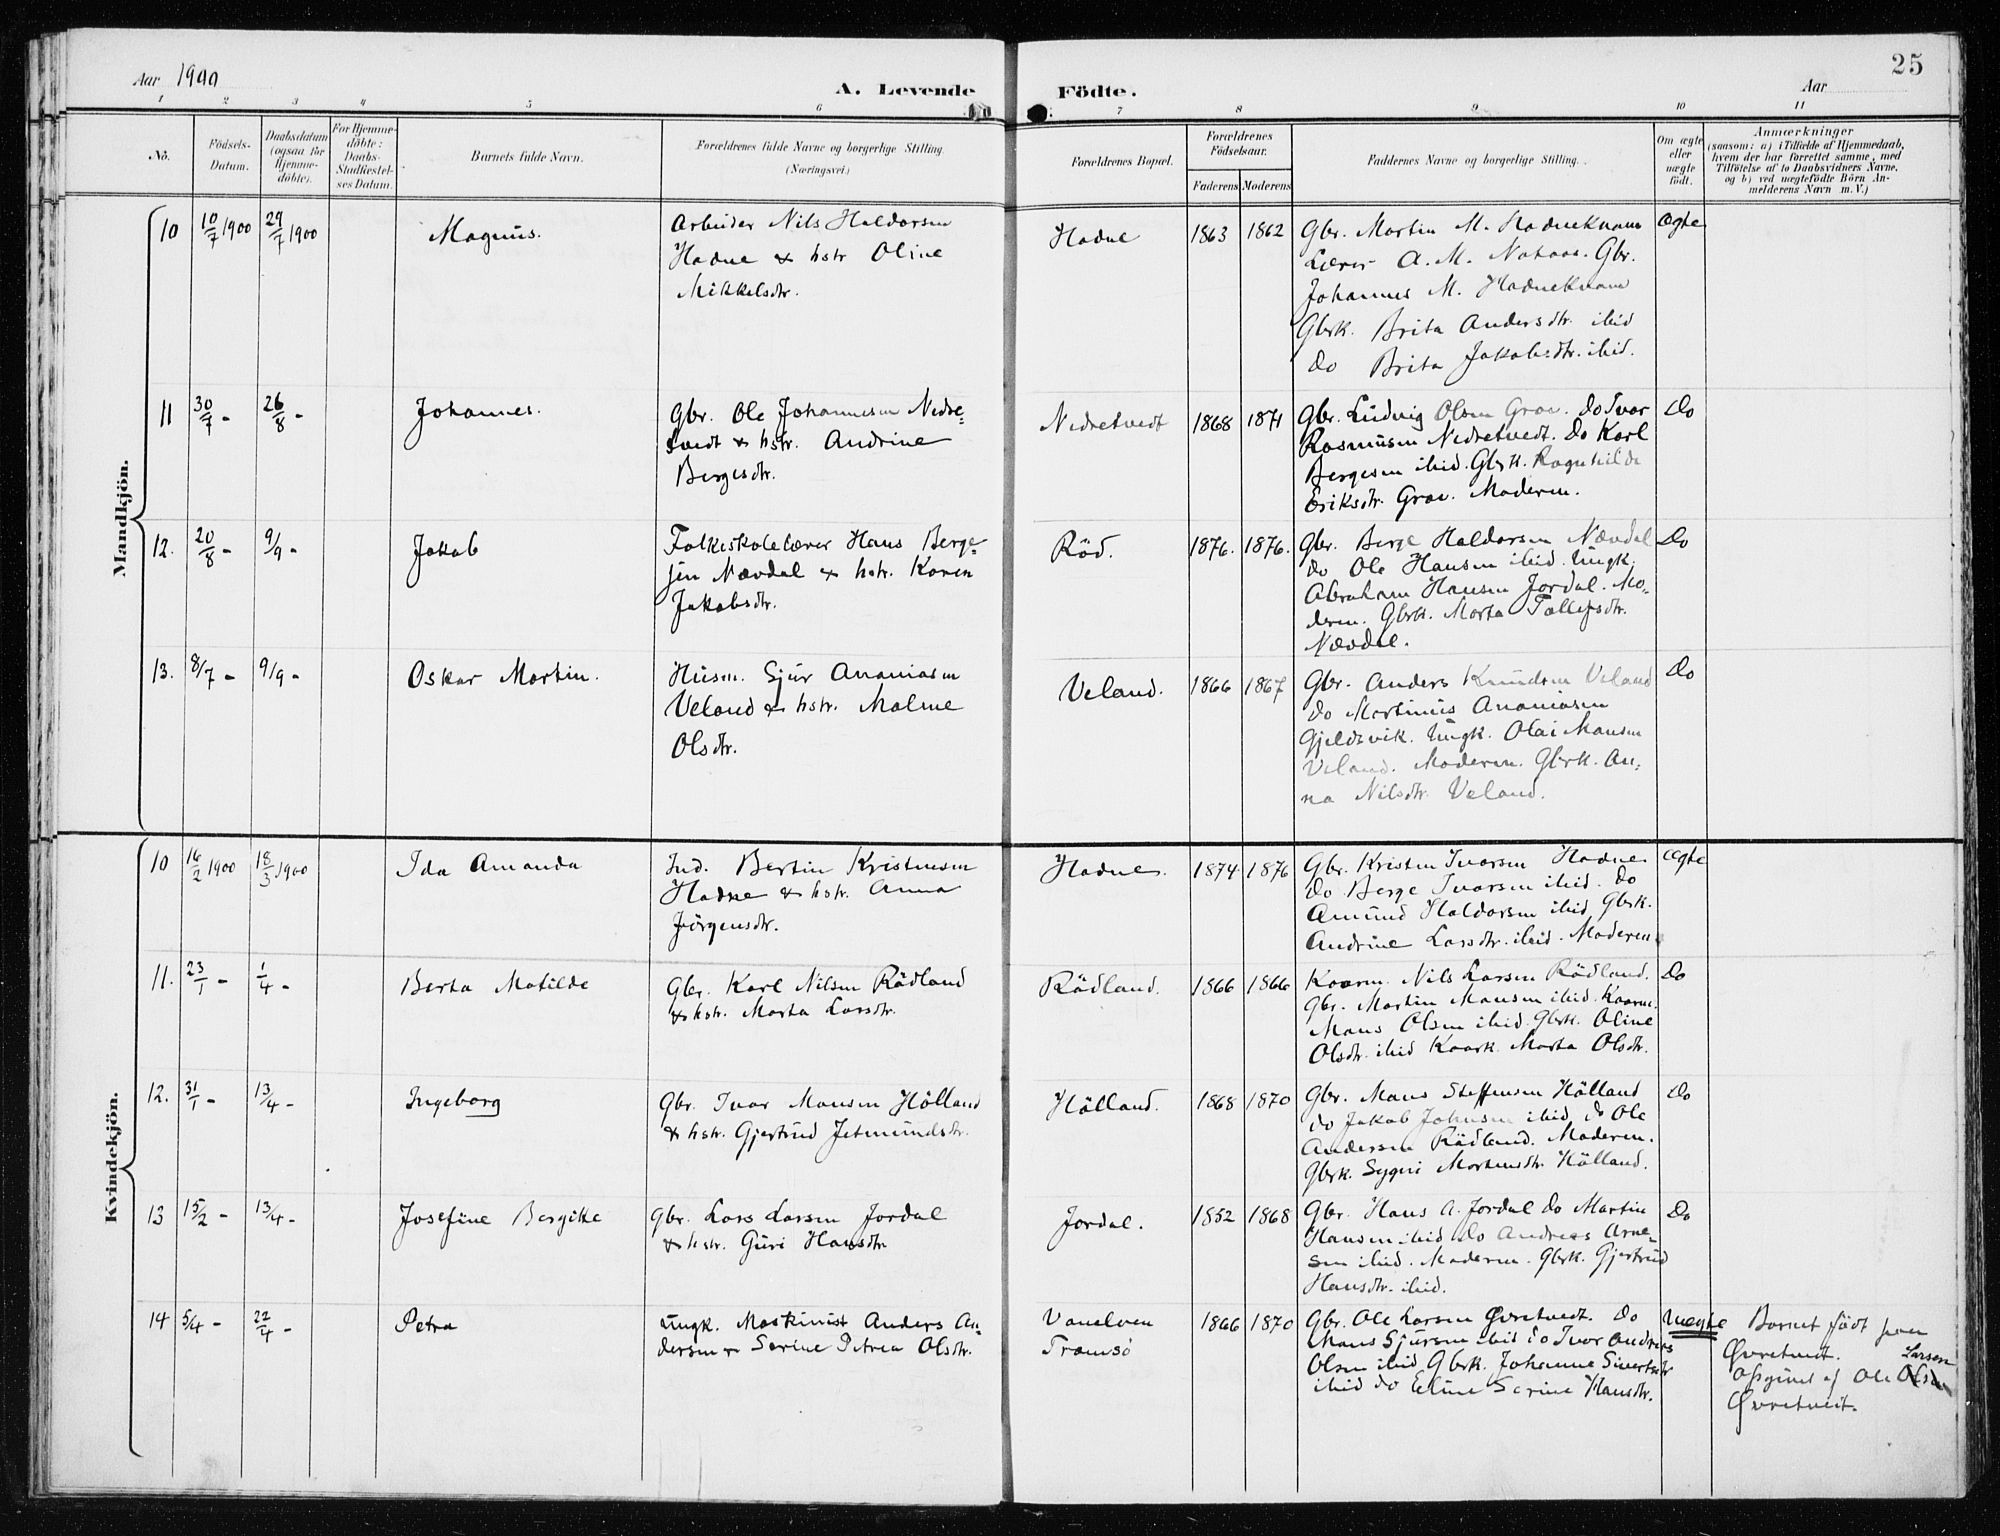 25
Aar 1900
A. Levende Födte.
Aar
1 2 3 4 5 6 7 8 9 10 11
No.
Födsels-
Datum.
Daabsdatum
(ogsaa for
Hjemme-
döbte).
For Hjemme-
döbte:
Daabs-
Stadfæstel-
ses Datum.
Barnets fulde Navn.
Forældrenes fulde Navne og borgerlige Stilling.
(Næringsvei.)
Forældrenes Bopæl.
Forældrenes
Födselsaar.
Faderens Moderens
Faddernes Navne og borgerlige Stilling.
Om ægte
eller
uægte
født.
Anmærkninger
(saasom: a) i Tilfælde af Hjemmedaab,
hvem der har forrettet samme, med
Tilföielse af to Daabsvidners Navne,
og b) ved uægtefödte Börn An-
melderens Navn m. V.)
Mandkjön.
10 10/7 1900 29/7 1900 Magnus.
Arbeider Nils Haldorsen
Hadne & hstr Oline
Mikkelsdtr.
Hadne 1863 1862
Gbr. Martin M. Hadneknam
Lærer A. M. Nataas. Gbr.
Johannes M. Hadneknam
Gbrk. Brita Andersdtr. ibid
do Brita Jakobsdtr. ibid.
Ægte
11 30/7 - 26/8 - Johannes.
Gbr. Ole Johannesen Nedre-
tvedt & hstr. Andrine
Bergesdtr.
Nedretvedt 1868 1871
Gbr. Ludvig Olsen Grov. do Ivar
Rasmusen Nedretvedt. do Karl
Bergesen ibid. Gbrk. Ragnhilda
Eriksdtr. Grov. Moderen.
Do
12. 20/8 - 9/9 - Jakob
Folkeskolelærer Hans Berge-
sen Nævdal & hstr. Karen
Jakobsdtr.
Röd. 1876. 1876.
Gbr. Berge Haldorsen Nævdal
do Ole Hansen ibid. Ungk.
Abraham Hansen Jordal. Mo-
deren. Gbrk. Marta Tollefsdtr.
Nævdal.
Do
13. 8/7 - 9/9 - Oskar Martin.
Husm. Sjur Ananiasen
Veland & hstr. Malene
Olsdtr.
Veland. 1866 1867
Gbr. Anders Knudsen Veland
do Martinus Ananiasen
Gjeldsvik. Ungk. Olai Mansen
Veland. Moderen. Gbrk. An-
na Nilsdtr. Veland.
Do
Kvindekjön.
10 16/2 1900 18/3 1900 Ida Amanda
Ind. Bertin Kristensen
Hadne & hstr. Anna
Jörgensdtr.
Hadne. 1874 1876
Gbr. Kristen Ivarsen Hadne
do Berge Ivarsen ibid. do
Amund Haldorsen ibid. Gbrk.
Andrine Larsdtr. ibid. Moderen.
Ægte
11. 23/1 - 1/4 - Berta Matilde
Gbr. Karl Nilsen Rödland
& hstr. Marta Larsdtr.
Rödland. 1866 1866
Kaarm. Nils Larsen Rödland.
Gbr. Martin Mansen ibid. Kaarm.
Mans Olsen ibid. Gbrk. Oline
Olsdtr. ibid Kaark. Marta Olsdtr.
Do
12. 31/1 - 13/4 - Ingeborg
Gbr. Ivar Mansen Hölland
& hstr. Gjertrud Jetmundsdtr.
Hölland. 1868 1870
Gbr. Mans Steffensen Hölland
do Jakob Johnsen ibid, do Ole
Andersen Rödland. Moderen.
Gbrk. Sygni Mortensdtr. Hölland.
Do
13 15/2 - 13/4 - Josefine Bergitte
Gbr. Lars Larsen Jordal
& hstr. Guri Hansdtr
Jordal. 1852 1868
Gbr. Hans A. Jordal do Martin
Hansen ibid do Andreas Arne-
sen ibid. Moderen. Gbrk. Gjertrud
Hansdtr. ibid.
Do
14 5/4 - 22/4 - Petra
Ungk. Maskinist Anders An-
dersen & Serine Petrea Olsdtr.
Tromsö 1866 1870
Gbr. Ole Larsen Øvretvedt. Do
Mans Sjursen ibid do Ivar Andreas
Olsen ibid Gbrk. Johanne Sivertsdtr
ibid do Eline Serine Hansdtr.
Uægte
Barnet født paa
Øvretveit. Larsen
Opgivet af Ole Olsen
Øvretveit.